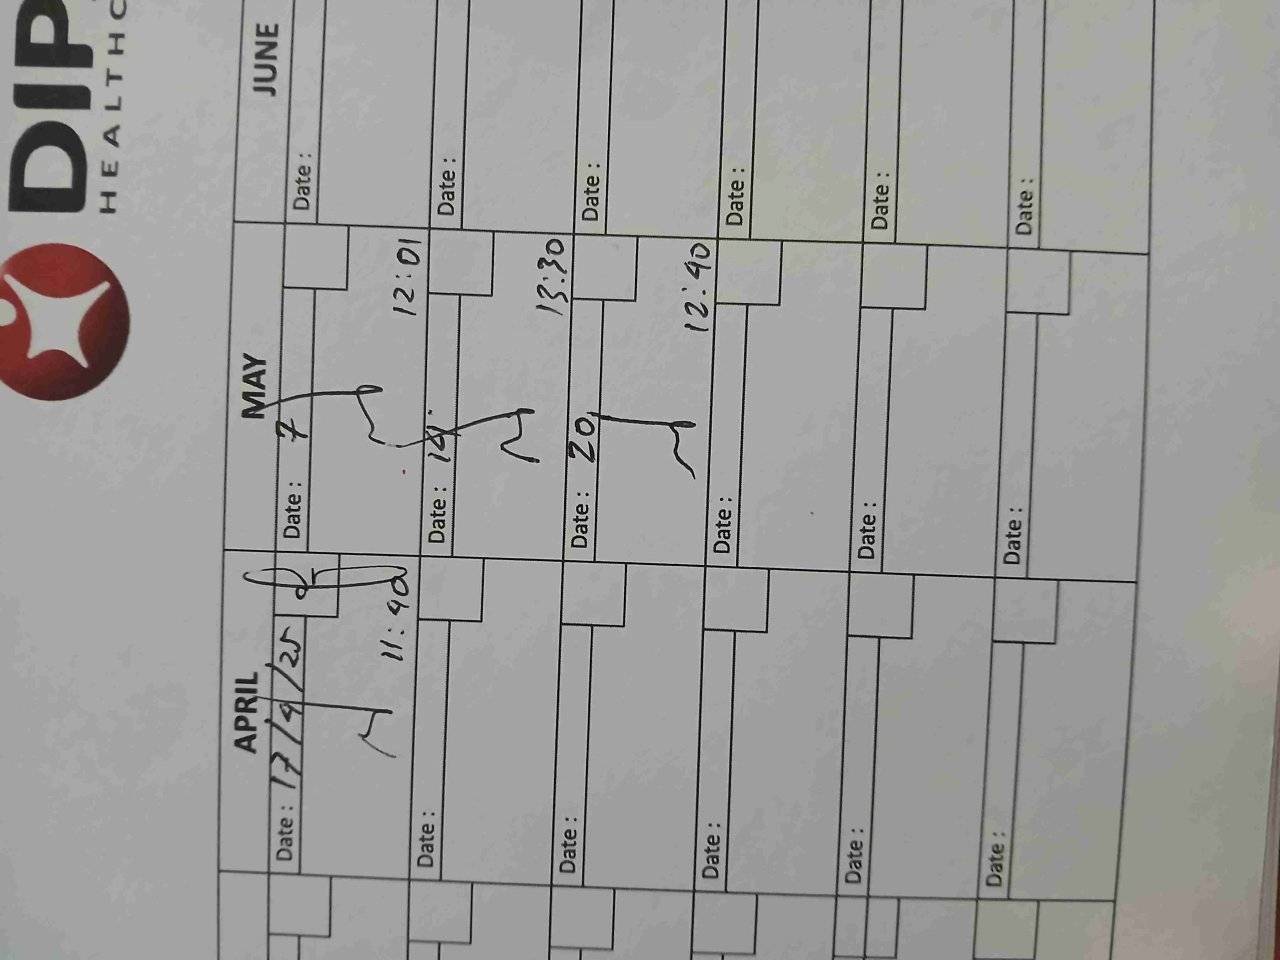 DIP
HEALTHC
APRIL MAY JUNE
Date : 17/4/25 Date : 7 Date :
11:40 12:01
Date : Date : 14. Date :
13:30
Date : Date : 20 Date :
12:40
Date : Date : Date :
Date : Date : Date :
Date : Date : Date :